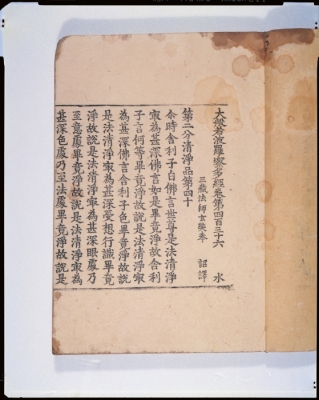 大般若波羅蜜多經卷第四百三十六 水
三藏法師玄奘奉 詔譯
第二分清淨品第四十
尒時舍利子白佛言世尊是法清淨
㝡為甚深佛言如是畢竟淨故舍利
子言何等畢竟淨故說是法清淨㝡
為甚深佛言舍利子色畢竟淨故說
是法清淨㝡為甚深受想行識畢竟
淨故說是法清淨㝡為甚深眼處乃
至意處畢竟淨故說是法清淨㝡為
甚深色處乃至法處畢竟淨故說是